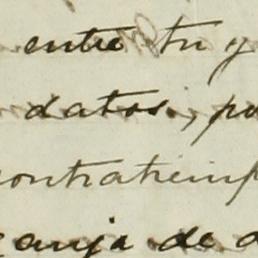 entre tu y
datos, po
contratiemp
zanja de d